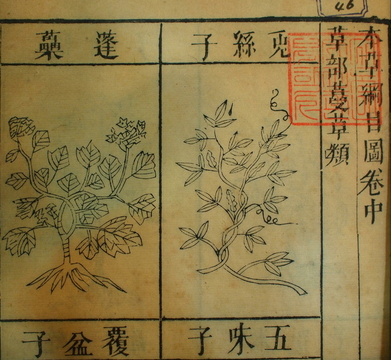 46
本草綱目圖卷中
草部蔓草類
兎絲子
蓬蘽
五味子
覆盆子